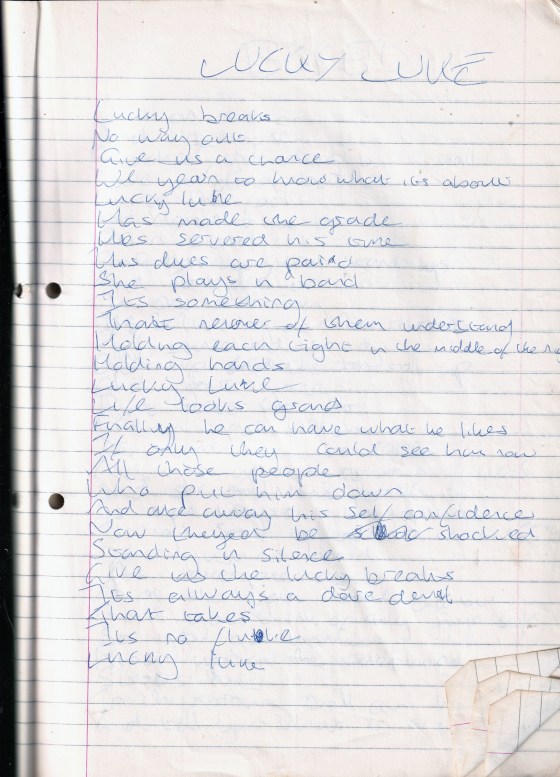 LUCKY LUKE
Lucky breaks
No way out
Give us a chance
We yearn to know what it's about
Lucky luke
Has made the grade
Hes servered his time
His dues are paid
She plays in band
Its something
That neiover of them understand
Holding each tight in the middle of the
Holding hands
Lucky Luke
Life looks grand
Finally he can have what he likes
If only they could see him now
All those people
Who put him down
And ate away his self confidence
Now theyed be shocked
Standing in silence
Give us the lucky breaks
Its always a dare devil
That takes
Its no fluke
Lucky luke